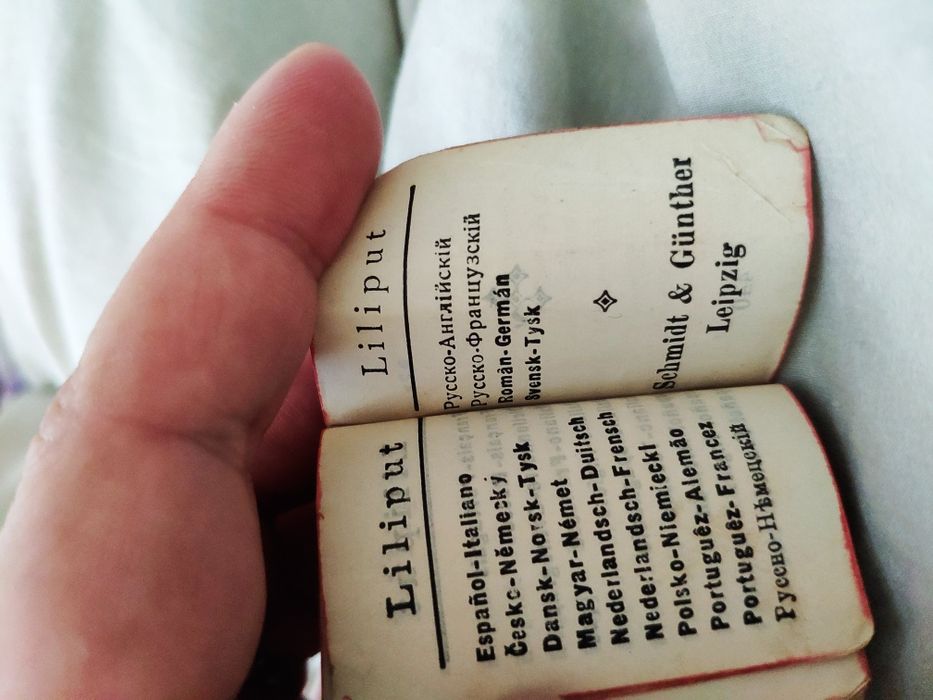 Liliput
Español-Italiano
Česko-Německý
Dansk-Norsk-Tysk
Magyar-Német
Nederlandsch-Duitsch
Nederlandsch-Frensch
Polsko-Niemiecki
Portuguêz-Alemão
Portuguêz-Francez
Русско-Нѣмецкій
Liliput
Русско-Англійскій
Русско-Французскій
Román-Germán
Svensk-Tysk
Schmidt & Günther
Leipzig